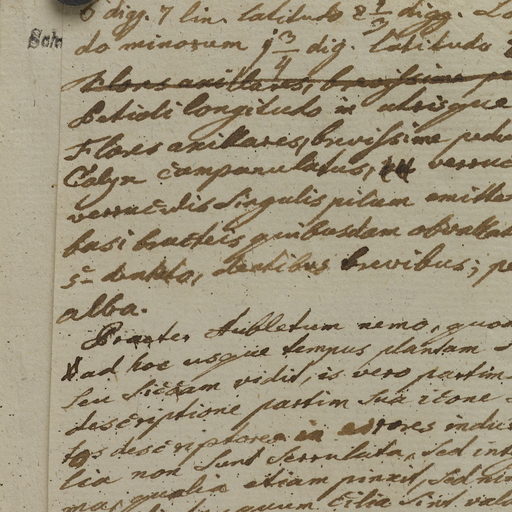 5 digg. 7 lin. latitudo 2 1/3 digg. Lo
do minorum 1 3/4 dig. latitudo
Flores axillares, brevissime pe
Petioli longitudo in utrisque
Flores axillares, brevissime pedu
Calyx campanulatus, verruc
verruculis singulis pilum emitte
basi bracteis quibusdam obvallat
5-dentato, dentibus brevibus; pe
alba.
Praeter Aubletum nemo, quod
ad hoc usque tempus plantam
seu siccam vidit, is vero partim
descriptione partim sua icone
tos descriptores in errores indux
lia non sunt serrulata, sed int
ma, qualia etiam pinxit, sed
quum cilia sint val